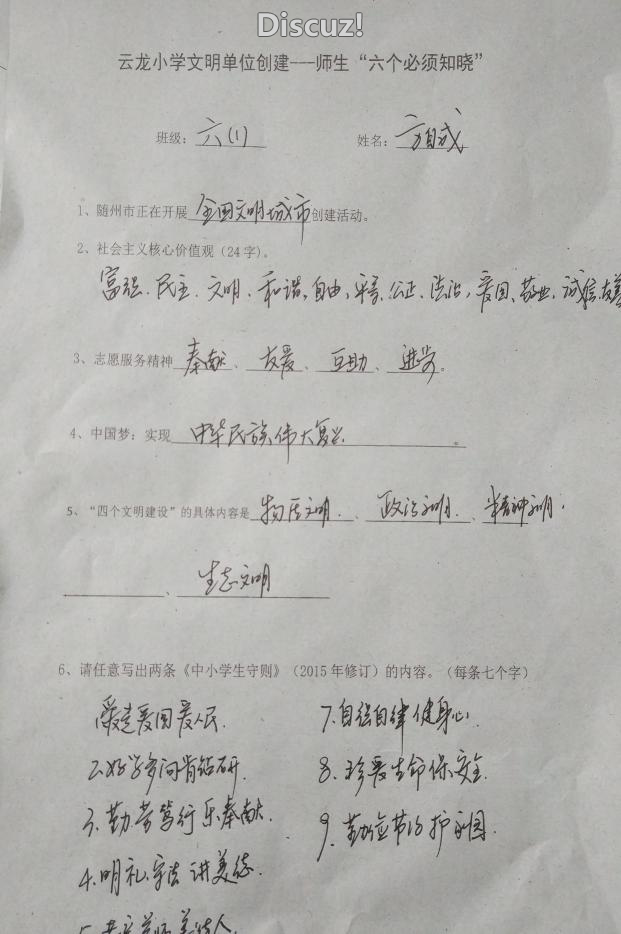 Discuz!
云龙小学文明单位创建---师生“六个必须知晓”
班级: 六(1) 姓名: 方自成
1、随州市正在开展 全国文明城市 创建活动。
2、社会主义核心价值观（24字）。
富强、民主、文明、和谐、自由、平等、公正、法治、爱国、敬业、诚信、友善
3、志愿服务精神 奉献、友爱、互助、进步。
4、中国梦：实现 中华民族伟大复兴 。
5、“四个文明建设”的具体内容是 物质文明、政治文明、精神文明、
、生态文明
6、请任意写出两条《中小学生守则》（2015年修订）的内容。（每条七个字）
爱党爱国爱人民. 7.自强自律健身心.
2.好学多问肯钻研. 8.珍爱生命保安全.
3.勤劳笃行乐奉献. 9.勤俭节约护家园.
4.明礼守法讲美德.
5.孝亲尊师善待人.